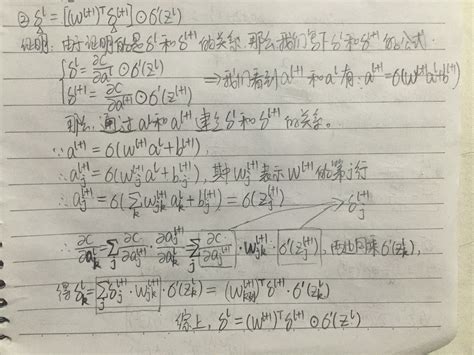 ② δˡ = [(Wˡ⁺¹)ᵀ δˡ⁺¹] ⊙ σ'(zˡ)
证明: 由于证明的是 δˡ 和 δˡ⁺¹ 的关系, 那么我们写下 δˡ 和 δˡ⁺¹ 的公式.
{ δˡ = ∂C/∂aˡ ⊙ σ'(zˡ)
{ δˡ⁺¹ = ∂C/∂aˡ⁺¹ ⊙ σ'(zˡ⁺¹) ⇒ 我们看到 aˡ⁺¹ 和 aˡ 有: aˡ⁺¹ = σ(wˡ⁺¹aˡ + bˡ⁺¹)
那么, 通过 aˡ 和 aˡ⁺¹ 建立 δˡ 和 δˡ⁺¹ 的关系。
∵ aˡ⁺¹ = σ(Wˡ⁺¹aˡ + bˡ⁺¹)
∴ aⱼˡ⁺¹ = σ(wⱼˡ⁺¹aˡ + bⱼˡ⁺¹), 其中 wⱼˡ⁺¹ 表示 Wˡ⁺¹ 的第 j 行
∴ aⱼˡ⁺¹ = σ(∑ₖ wⱼₖˡ⁺¹ aₖˡ + bⱼˡ⁺¹) = σ(zⱼˡ⁺¹) δⱼˡ⁺¹
∴ ∂C/∂aₖˡ = ∑ⱼ ∂C/∂aⱼˡ⁺¹ · ∂aⱼˡ⁺¹/∂aₖˡ = ∑ⱼ ∂C/∂aⱼˡ⁺¹ · wⱼₖˡ⁺¹ · σ'(zⱼˡ⁺¹), 两边同乘 σ'(zₖˡ),
得 δₖˡ = ∑ⱼ δⱼˡ⁺¹ · wⱼₖˡ⁺¹ · σ'(zₖˡ) = ᵀ δˡ⁺¹ · σ'(zₖˡ)
综上, δˡ = (Wˡ⁺¹)ᵀ δˡ⁺¹ ⊙ σ'(zˡ)